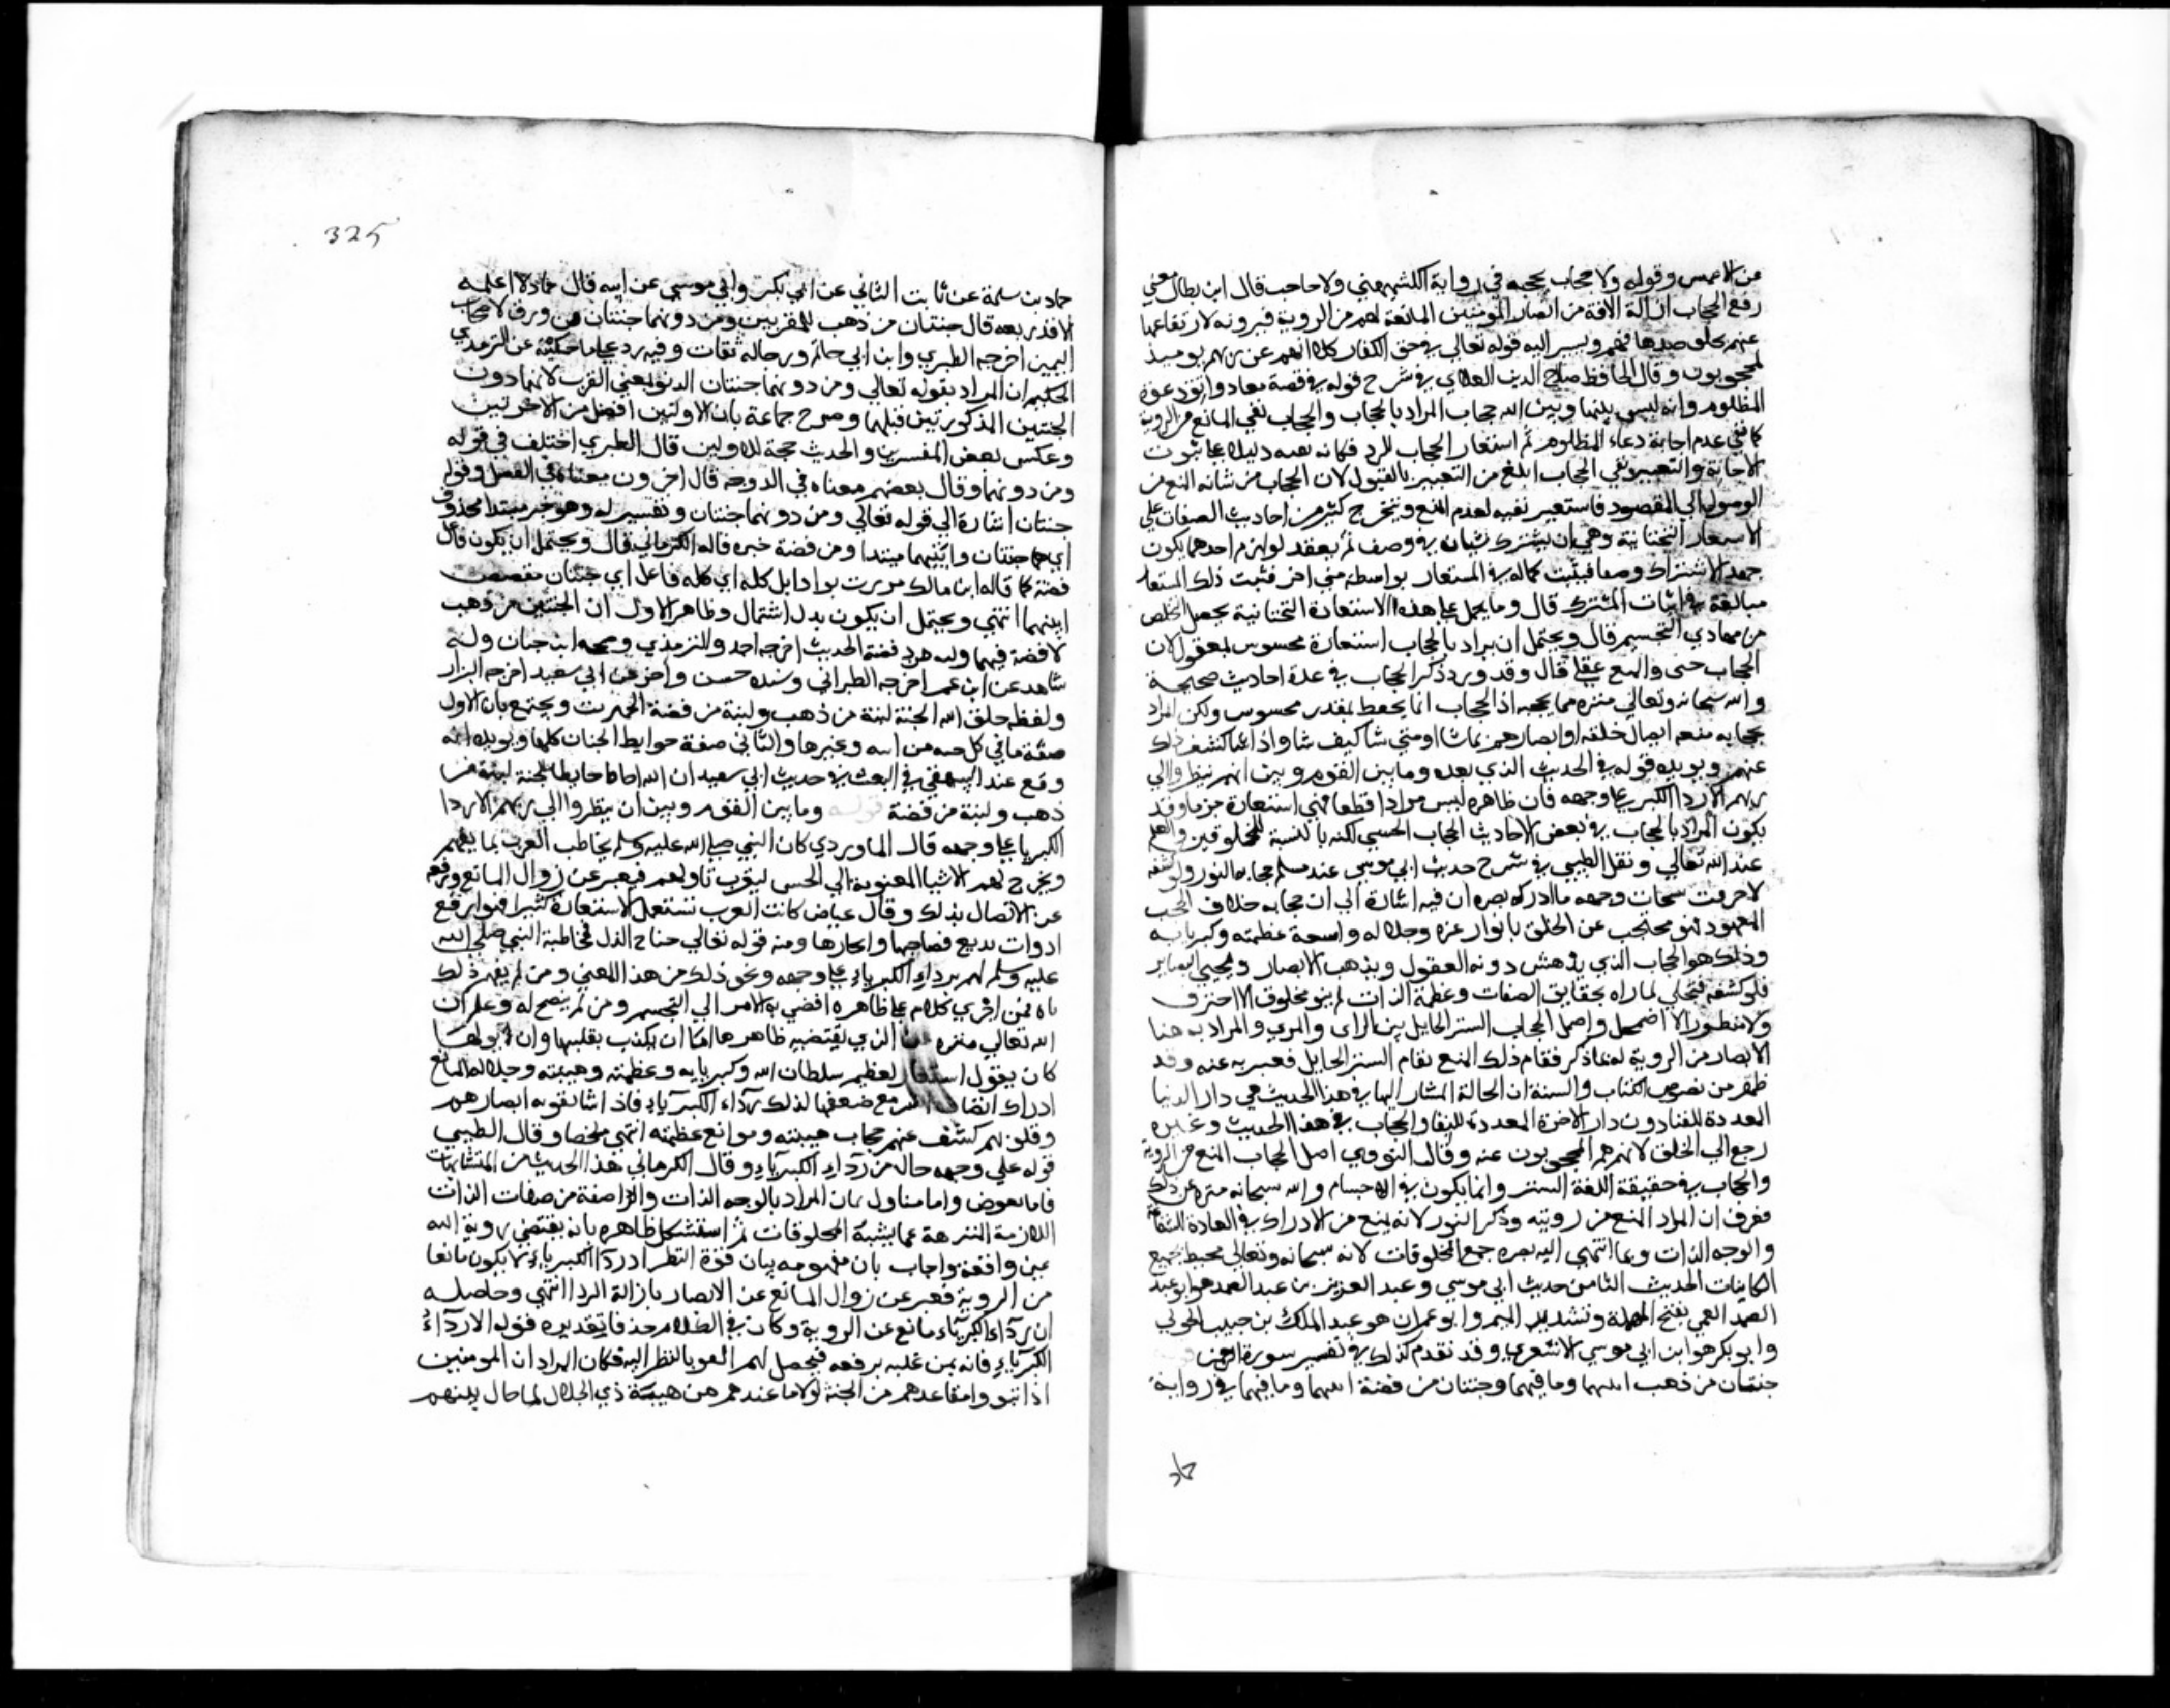 من الاعمش وقوله ولا حجاب يحجبه في رواية الكشميهني ولا حاجب قال ابن بطال معنى
رفع الحجاب ازالة الافة من ابصار المؤمنين المانعة لهم من الروية فيرونه لارتفاعها
عنهم بخلق ضدها فيهم ويشير اليه قوله تعالى في حق الكفار كلا انهم عن ربهم يوميذ
لمحجوبون وقال الحافظ صلاح الدين العلاي في شرح قوله في قصة معاذ واتق دعوة
المظلوم وانه ليس بينها وبين الله حجاب المراد بالحجاب والحجاب نفي المانع من الروية
كما نفى عدم اجابة دعاء المظلوم ثم استعار الحجاب للرد فكانه نفيه دليلا على ثبوت
الاجابة والتعبير بنفي الحجاب ابلغ من التعبير بالقبول لان الحجاب من شانه المنع من
الوصول الى المقصود فاستعير نفيه لعدم المنع ويتخرج كثير من احاديث الصفات على
الاستعارة التخييلية وهي ان يشترك شيان في وصف ثم يعتمد لوازم احدهما يكون
جهة الاشتراك وصفا فيثبت كماله في المستعار بواسطة شي اخر فثبت ذلك للمستعار
مبالغة في اثبات المشترك قال وبالحمل على هذه الاستعارة التخييلية يحصل التخلص
من مهاوي التجسيم قال ويحتمل ان يراد بالحجاب استعارة محسوس لمعقول لان
الحجاب حسي والمنع عقلي قال وقد ورد ذكر الحجاب في عدة احاديث صحيحة
والله سبحانه وتعالى منزه مما يحجبه اذ الحجاب انما يحيط بمقدر محسوس ولكن المراد
بحجابه منعه ابصار خلقه او بصايرهم بما شا او متى شا كيف شا واذا شا كشف ذلك
عنهم ويويده قوله في الحديث الذي بعده وما بين القوم وبين ان ينظروا الى
ربهم الا رداء الكبريا على وجهه فان ظاهره ليس مرادا قطعا فهي استعارة جزما وقد
يكون المراد بالحجاب في بعض الاحاديث الحجاب الحسي لكنه بالنسبة للمخلوقين والعلم
عند الله تعالى ونقل الطيبي في شرح حديث ابي موسى عند مسلم حجابه النور ولو كشفه
لاحرقت سبحات وجهه ما ادركه بصره ان فيه اشارة الى ان حجابه خلاف الحجب
المعهودة فهو محتجب عن الخلق بانوار عزه وجلاله واسعة عظمته وكبريايه
وذلك هو الحجاب الذي يدهش دونه العقول ويذهب الابصار وتتحير البصاير
فلو كشفه فتجلى لما وراه بحقايق الصفات وعظمة الذات لم يبق مخلوق الا احترق
ولا منظور الا اضمحل واصل الحجاب الستر الحايل بين الراي والمرئي والمراد به هنا
الابصار من الروية له بما ذكر فقام ذلك المنع مقام الستر الحايل فعبر به عنه وقد
ظهر من نصوص الكتاب والسنة ان الحالة المشار اليها في هذا الحديث هي دار الدنيا
المعدة للفنا دون دار الاخرة المعدة للبقا والحجاب في هذا الحديث وغيره
رجع الى الخلق لانهم هم المحجوبون عنه وقال النووي اصل الحجاب المنع من الروية
والحجاب في حقيقة اللغة الستر وانما يكون في الاجسام والله سبحانه منزه عن ذلك
فعرف ان المراد المنع من رويته وذكر النور لانه يمنع من الادراك في العادة لشعاعه
والوجه الذات وما انتهى اليه بصره جميع المخلوقات لانه سبحانه وتعالى محيط بجميع
الكاينات الحديث الثامن حديث ابي موسى وعبد العزيز بن عبد الصمد هو ابو عبد
الصمد العمي بفتح المهملة وتشديد الميم وابو عمران هو عبد الملك بن حبيب الجوني
وابو بكر هو ابن ابي موسى الاشعري وقد تقدم كذلك في تفسير سورة الرحمن
جنتان من ذهب انيتهما وما فيهما وجنتان من فضة انيتهما وما فيهما في رواية
حماد
325
حماد بن سلمة عن ثابت البناني عن ابي بكر بن ابي موسى عن ابيه قال حماد لا اعلمه
الا قد رفعه قال جنتان من ذهب للمقربين ومن دونهما جنتان من ورق لاصحاب
اليمين اخرجه الطبري وابن ابي حاتم ورجاله ثقات وفيه رد على ما حكيته عن الترمذي
الحكيم ان المراد بقوله تعالى ومن دونهما جنتان الدنو بمعنى القرب لا انهما دون
الجنتين المذكورتين قبلهما وصرح جماعة بان الاوليين افضل من الاخريين
وعكس بعض المفسرين والحديث حجة للاولين قال الطبري اختلف في قوله
ومن دونهما وقال بعضهم معناه في الدرجة قال اخرون معناه في الفضل وقوله
جنتان اشارة الى قوله تعالى ومن دونهما جنتان وتفسير له وهو خبر مبتدا محذوف
اي هما جنتان وانيتهما مبتدا ومن فضة خبره قاله الكرماني قال ويحتمل ان يكون فاعل
فضة كما قال ابن مالك مررت بواد ابل كله اي كله فاعل اي جنتان مفضض
انيتهما انتهى ويحتمل ان يكون بدل اشتمال وظاهر الاول ان الجنتين من ذهب
لا فضة فيهما وبالعكس فضة الحديث اخرجه احمد والترمذي وصححه ابن حبان وله
شاهد عن ابن عمر اخرجه الطبراني وسنده حسن واخر عن ابي سعيد اخرجه البزار
ولفظه خلق الله الجنة لبنة من ذهب ولبنة من فضة الحديث ويجمع بان الاول
صفة ما في كل جنة من انية وغيرها والثاني صفة حوايط الجنان كلها ويويده انه
وقع عند البيهقي في البعث في حديث ابي سعيد ان الله احاط حايط الجنة لبنة من
ذهب ولبنة من فضة قوله وما بين القوم وبين ان ينظروا الى ربهم الا ردا
الكبريا على وجهه قال الماوردي كان النبي صلى الله عليه وسلم يخاطب العرب بما يفهم
ويخرج لهم الاشيا المعنوية الى الحس ليقرب تناولهم فيعبر عن زوال المانع ورفعه
عن الاتصال بذلك وقال عياض كانت العرب تستعمل الاستعارة كثيرا فهو ارفع
ادوات بديع فصاحتها وايجازها ومنه قوله تعالى جناح الذل فمخاطبة النبي صلى الله
عليه وسلم لهم برداء الكبرياء على وجهه ونحو ذلك من هذا المعنى ومن لم يفهم ذلك
تاه فمن اجرى الكلام على ظاهره افضى به الامر الى التجسيم ومن لم يتضح له وعلم ان
الله تعالى منزه عن الذي يقتضيه ظاهرها اما ان يكذب نقلتها وان يؤولها
كان يقول استعار لعظيم سلطان الله وكبريايه وعظمته وهيبته وجلاله المانع
ادراك ابصار البشر مع ضعفها لذلك رداء الكبرياء فاذا شا تقوية ابصارهم
وقلوبهم كشف عنهم حجاب هيبته وموانع عظمته انتهى ملخصا وقال الطيبي
قوله على وجهه حال من رداء الكبرياء وقال الكرماني هذا الحديث من المتشابهات
فاما مفوض واما متاول بان المراد بالوجه الذات والردا صفة من صفات الذات
اللازمة المنزهة عما يشبه المخلوقات ثم استشكل ظاهره بانه يقتضي روية الله
غير واقعة واجاب بان مفهومه بيان قرب النظر اذ ردا الكبرياء لا يكون مانعا
من الروية فعبر عن زوال المانع عن الابصار بازالة الردا انتهى وحاصله
ان رداء الكبرياء مانع عن الروية وكان في الكلام حذفا تقديره فوله الا رداء
الكبرياء فانه يمن عليه برفعه فيحصل لهم الفوز بالنظر اليه فكان المراد ان المومنين
اذا تبووا مقاعدهم من الجنة لولا ما عندهم من هيبة ذي الجلال لما حال بينهم